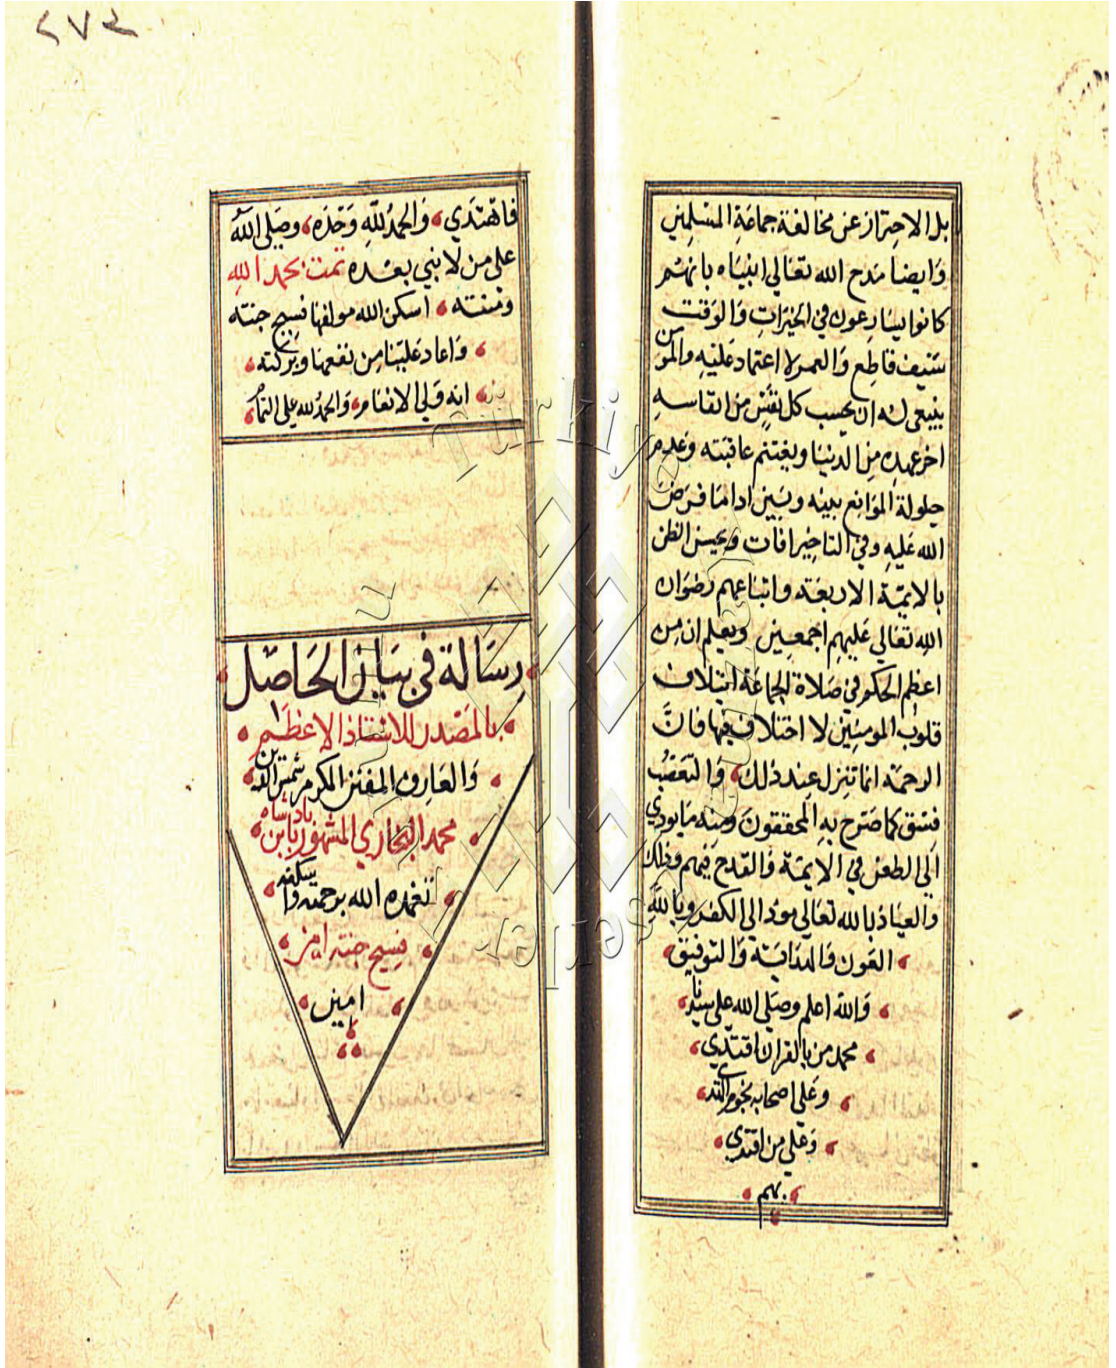 بل الاحتراز عن مخالفة جماعة المسلمين
وايضا مدح الله تعالي انبياه بانهم
كانوا يسارعون في الخيرات والوقت
سيف قاطع والعمر لا اعتماد عليه والمومن
ينبغي له ان يحسب كل نفس من انفاسه
اخر عهده من الدنيا ويغتنم عاقبته وعدم
حلولة الموانع بينه وبين ادا ما فرض
الله عليه وفي التاخير افات ويحسن الظن
بالايمة الاربعة واتباعهم رضوان
الله تعالي عليهم اجمعين ويعلم ان من
اعظم الحكم في صلاة الجماعة ايتلاف
قلوب المومنين لا اختلاف فيها فان
الرحمة انما تنزل عند ذلك والتعصب
فسق كما صرح به المحققون ومنه ما يودي
الي الطعن في الايمة والقدح فيهم وذلك
والعياذ بالله تعالي مود الي الكفر وبالله
العون والهداية والتوفيق
والله اعلم وصلي الله علي سيدنا
محمد من بالقران اقتدي
وعلي اصحابه نجوم
وعلي من اقتدي
بهم
٢٧٢
فاهتدي والحمد لله وحده وصلي الله
علي من لا نبي بعده تمت بحمد الله
ومنته اسكن الله مولفها فسيح جنته
واعاد علينا من نفعها وبركته
انه ولي الانعام والحمد لله علي التمام
رسالة في بيان الحاصل
بالمصدر للاستاذ الاعظم
والعارف المفنن المكرم شمس الدين
محمد البخاري المشهور بابن بادشاه
تغمده الله برحمته واسكنه
فسيح جنته امين
امين
Türkiye